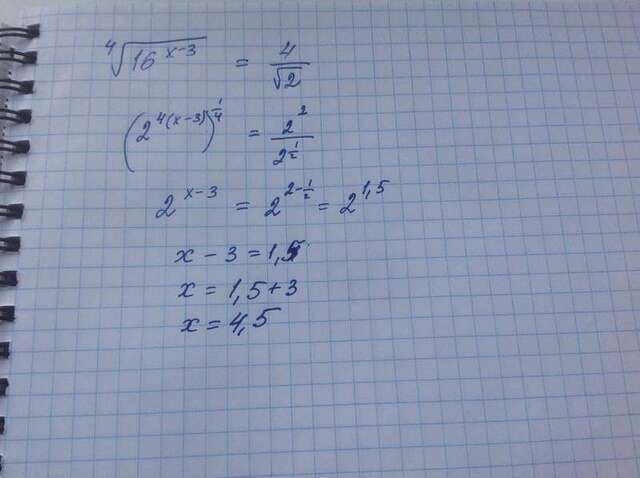 ⁴√(16^(x-3)) = 4/√2
(2^(4(x-3)))^(1/4) = 2^2/2^(1/2)
2^(x-3) = 2^(2-1/2) = 2^(1,5)
x - 3 = 1,5
x = 1,5 + 3
x = 4,5